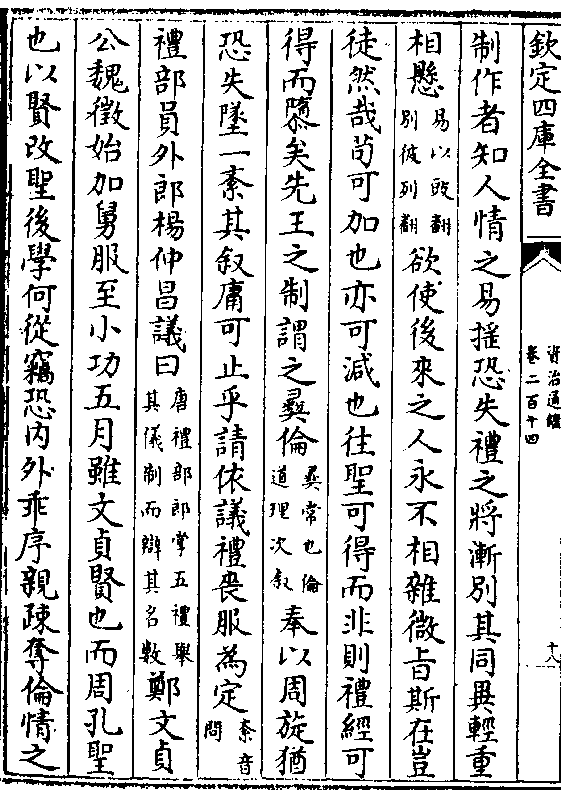 欽定四庫全書
資治通鑑
卷二百十四
十八
制作者知人情之易揺恐失禮之將漸别其同異輕重
相懸易以豉翻别彼列翻欲使後來之人永不相雜微㫖斯在豈
徒然哉苟可加也亦可減也往聖可得而非則禮經可
得而隳矣先王之制謂之彞倫彞常也倫道理次叙奉以周旋猶
恐失墜一紊其叙庸可止乎請依議禮喪服為定紊音問
禮部員外郎楊仲昌議曰唐禮部郎掌五禮舉其儀制而辯其名數鄭文貞
公魏徵始加舅服至小功五月雖文貞賢也而周孔聖
也以賢改聖後學何從竊恐内外乖序親疎奪倫情之